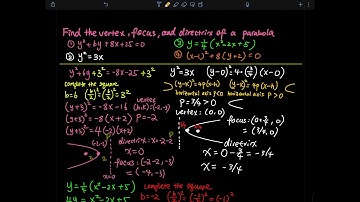 Find the vertex, focus, and directrix of a parabola
① y²+6y+8x+25=0 ③ y=¼(x²-2x+5)
② y²=3x ④ (x-1)²+8(y+2)=0
y²+6y+3²=-8x-25+3²
complete the square
b=6 (b/2)²=(6/2)²=3²
(y+3)²=-8x-16
(y+3)²=-8(x+2) P=-2
(y+3)²=4(-2)(x+2)
vertex (h,k)=(-2,-3)
directrix: x=-2-P
x=0
focus: (-2-2,-3)
=(-4,-3)
x=0
y²=3x (y-0)²=4(3/4)(x-0)
(y-k)²=4p(x-h) (y-k)²=4p(x-h)
horizontal axis p<0 horizontal axis p>0
P=3/4>0
vertex: (0,0)
focus: (0+3/4,0)
(3/4,0)
directrix
x=0-3/4=-3/4
x=-3/4
y=¼(x²-2x+5) complete the square
4y=x²-2x+5 b=-2 (b/2)²=(-2/2)²=(-1)²